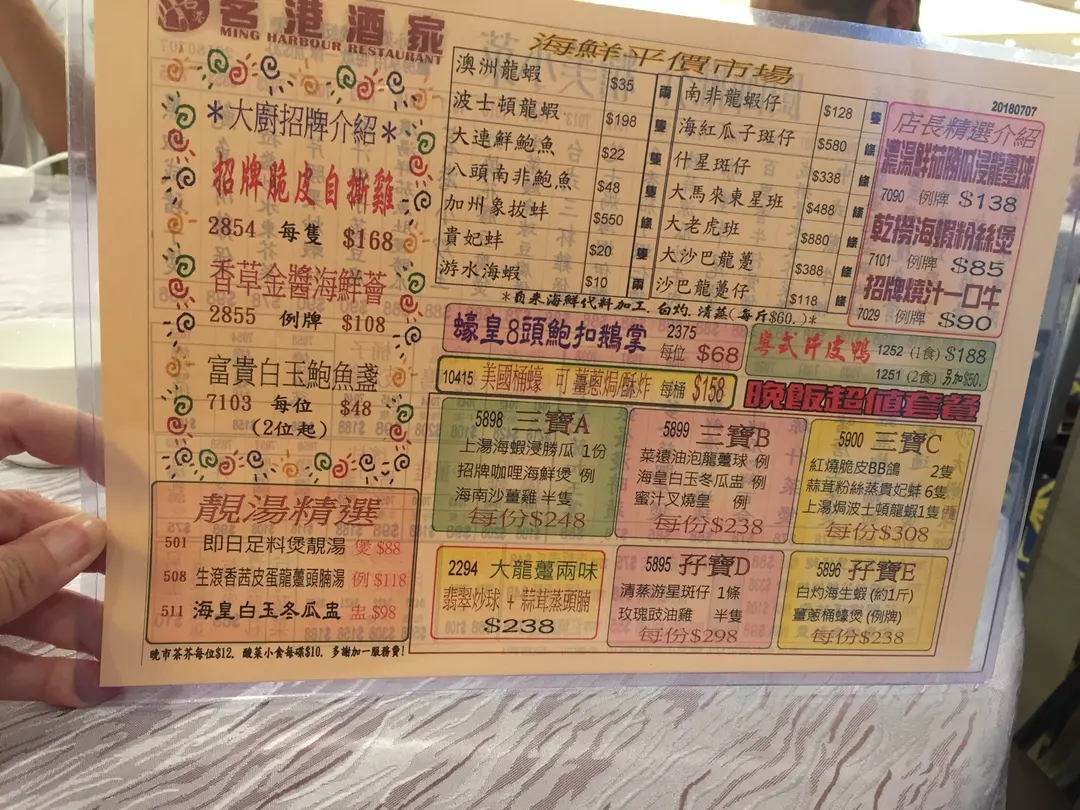 名港酒家
MING HARBOUR RESTAURANT
*大廚招牌介紹*
招牌脆皮自撕雞
2854 每隻 $168
香草金醬海鮮薈
2855 例牌 $108
富貴白玉鮑魚盞
7103 每位 $48
(2位起)
靚湯精選
501 即日足料煲靚湯 煲 $88
508 生滾香茜皮蛋龍躉頭腩湯 例 $118
511 海皇白玉冬瓜盅 盅 $98
晚市茶芥每位$12. 酸菜小食每碟$10. 多謝加一服務費!
海鮮平價市場
澳洲龍蝦 $35 兩
波士頓龍蝦 $198 隻
大連鮮鮑魚 $22 隻
八頭南非鮑魚 $48 隻
加州象拔蚌 $550 條
貴妃蚌 $20 隻
游水海蝦 $10 兩
南非龍蝦仔 $128 隻
海紅瓜子斑仔 $580 條
什星斑仔 $338 條
大馬來東星班 $488 條
大老虎班 $880 條
大沙巴龍躉 $388 條
沙巴龍躉仔 $118 條
*自來海鮮代料加工. 白灼. 清蒸(每斤$60.)*
20180707
店長精選介紹
濃湯鮮茄勝瓜浸龍躉球
7090 例牌 $138
乾撈海蝦粉絲煲
7101 例牌 $85
招牌燒汁一口牛
7029 例牌 $90
蠔皇8頭鮑扣鵝掌 2375 每位 $68
粵式片皮鴨 1252 (1食) $188
1251 (2食) 另加$50.
10415 美國桶蠔 可 薑蔥焗/酥炸 每桶 $158
晚飯超值套餐
5898 三寶A
上湯海蝦浸勝瓜 1份
招牌咖哩海鮮煲 例
海南沙薑雞 半隻
每份$248
5899 三寶B
菜遠油泡龍躉球 例
海皇白玉冬瓜盅 例
蜜汁叉燒皇 例
每份$238
5900 三寶C
紅燒脆皮BB鴿 2隻
蒜茸粉絲蒸貴妃蚌 6隻
上湯焗波士頓龍蝦1隻
每份$308
2294 大龍躉兩味
翡翠炒球 + 蒜茸蒸頭腩
$238
5895 孖寶D
清蒸游星斑仔 1條
玫瑰豉油雞 半隻
每份$298
5896 孖寶E
白灼海生蝦 (約1斤)
薑蔥桶蠔煲 (例牌)
每份$238